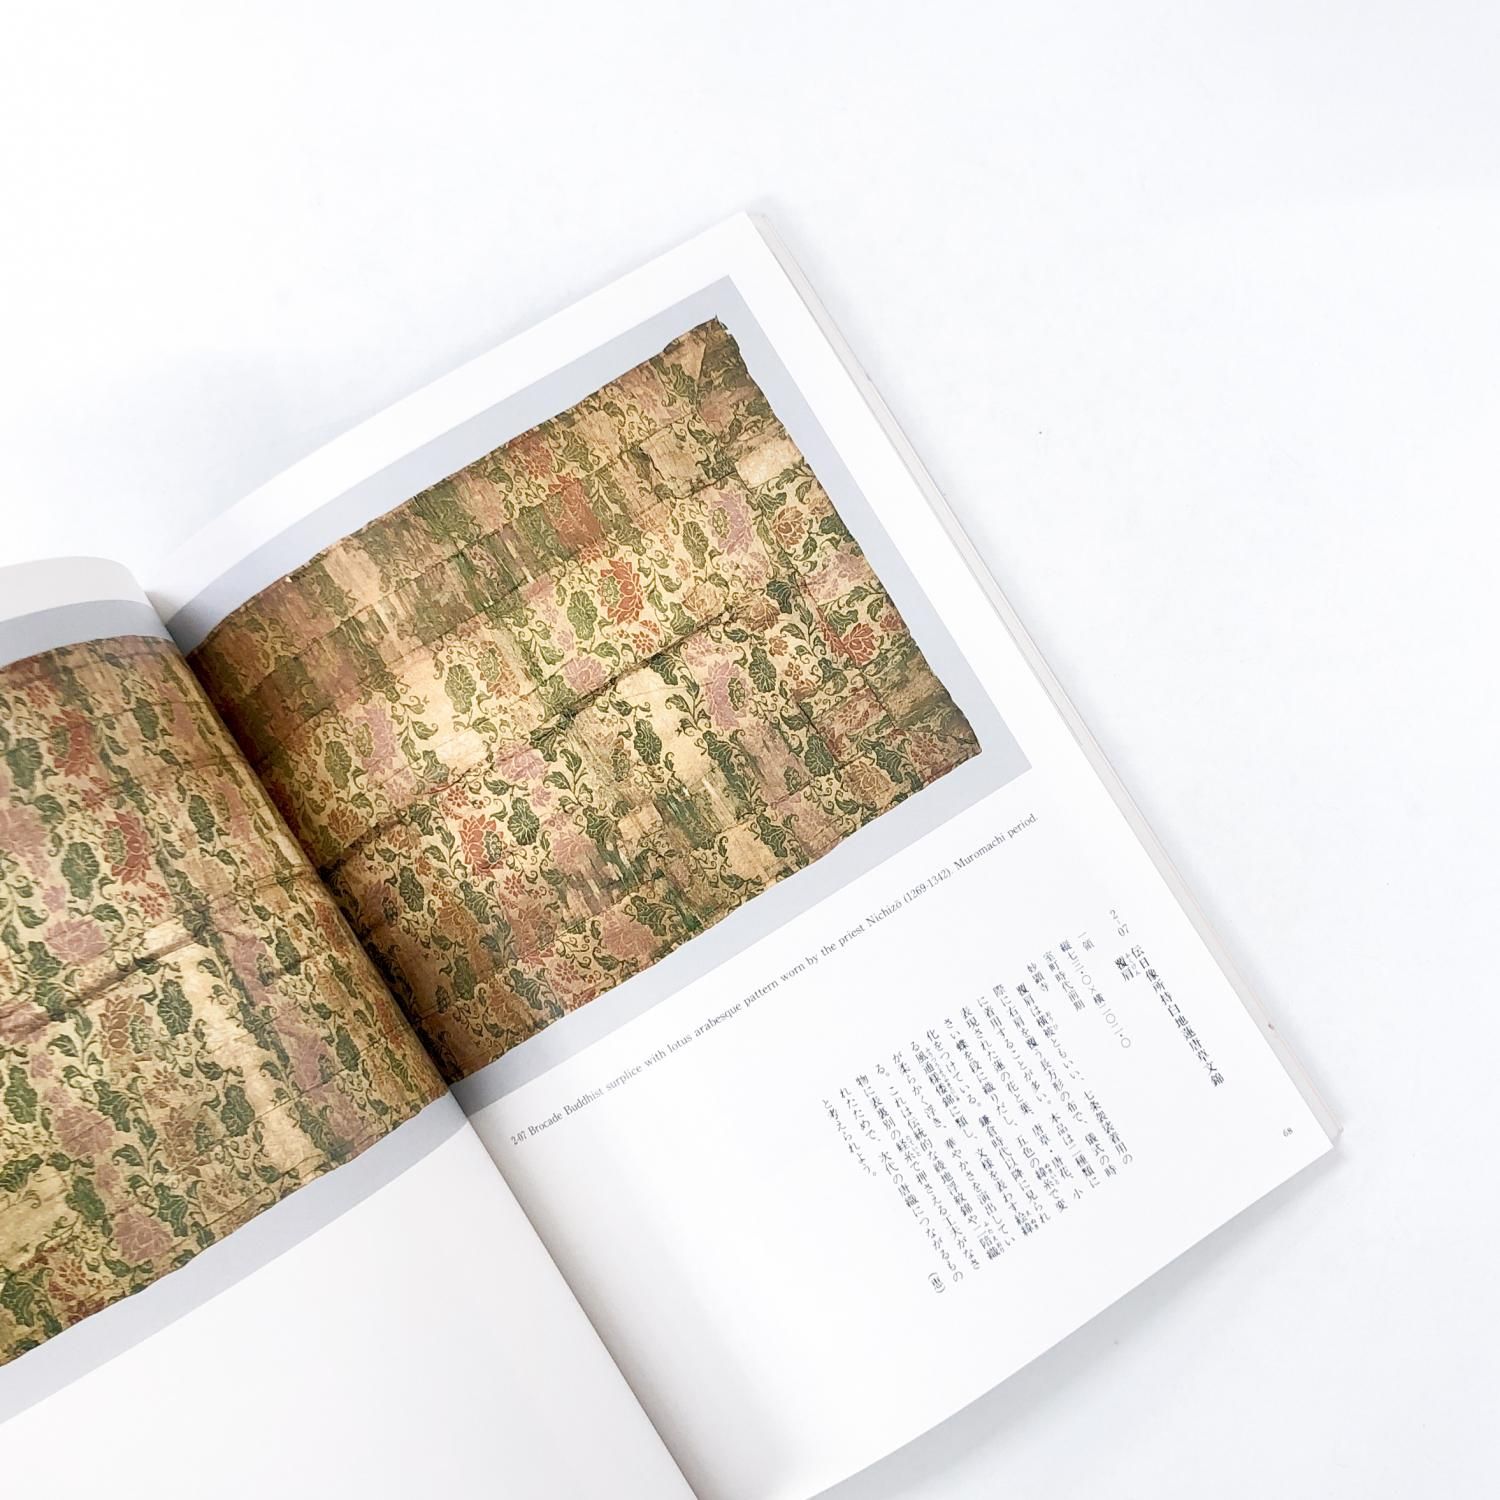 2-07 Brocade Buddhist surplice with lotus arabesque pattern worn by the priest Nichizō (1269-1342). Muromachi period.
2-07 伝日像所持白地蓮唐草文錦
覆肩
一領
縦七三・〇×横二〇二・〇
室町時代前期
妙顕寺
覆肩は横被ともいい、七条袈裟着用の
際に右肩を覆う長方形の布で、儀式の時
に着用することが多い。本品は二種類に
表現された蓮の花と葉、唐草・唐花、小
さい蝶を段に織りだし、五色の緯糸で変
化をつけている。鎌倉時代以降に見られ
る風通様倭錦に類し、文様を表わす絵緯
が柔らかく浮き、華やかさを演出してい
る。これは伝統的な綾地浮紋錦や二陪織
物に表裏別の経糸で押さえる工夫がなさ
れたためで、次代の唐織につながるもの
と考えられよう。
（恵）
68